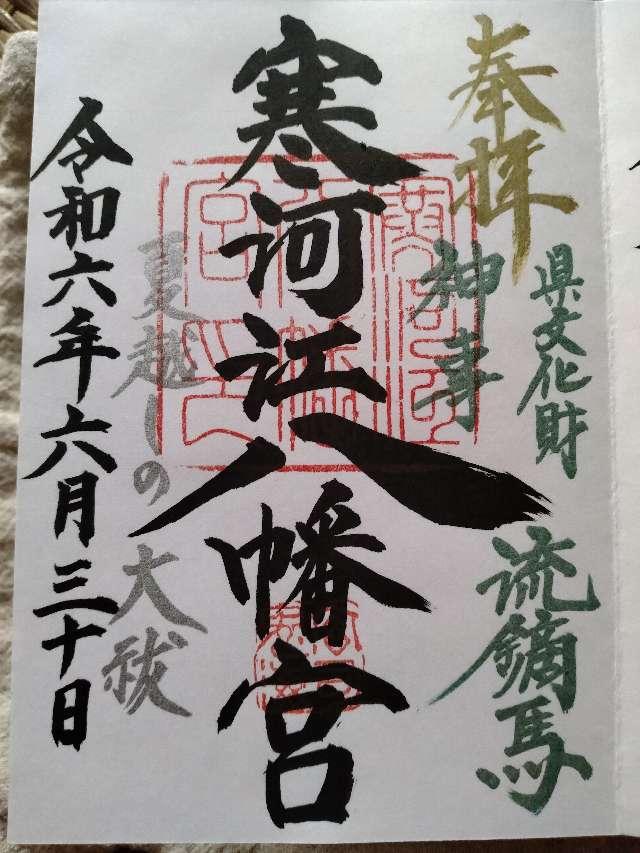 奉拝
県文化財
神事
流鏑馬
寒河江八幡宮
夏越しの
大祓
令和六年六月三十日